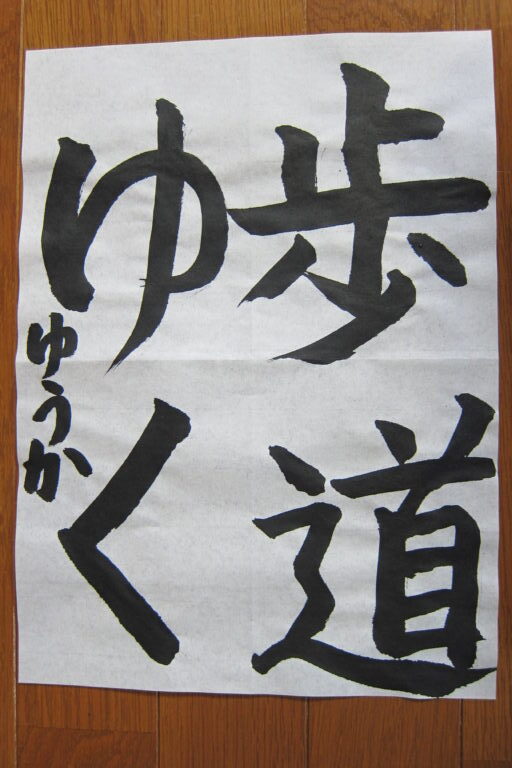 歩道
ゆく
ゆうか